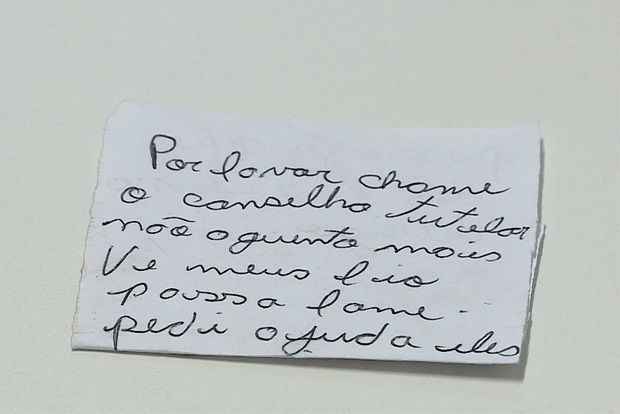 Por favor chame
o conselho tutelar
não aguento mais
Ve meus fio
passa fome..
pedi ajuda eles